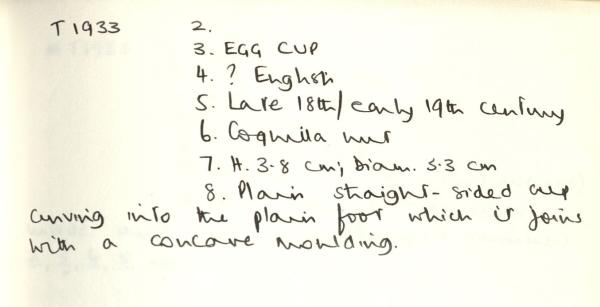 T 1933 2.
3. EGG CUP
4. ? English
5. Late 18th/early 19th century
6. Coquilla nut
7. H. 3.8 cm; Diam. 5.3 cm
8. Plain straight-sided cup
curving into the plain foot which it joins
with a concave moulding.